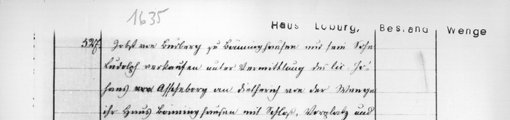 1635
Haus Loburg, Bestand Wenge
527. Jobst von Büsberg zu Bönninghausen mit sein Sohn
Rudolph verkaufen unter Vermittlung des lic. Jo-
hans von Asscheberg an Dietherich von der Wenge
ihr Haus Bönninghausen mit Schloß, Vorplatz und